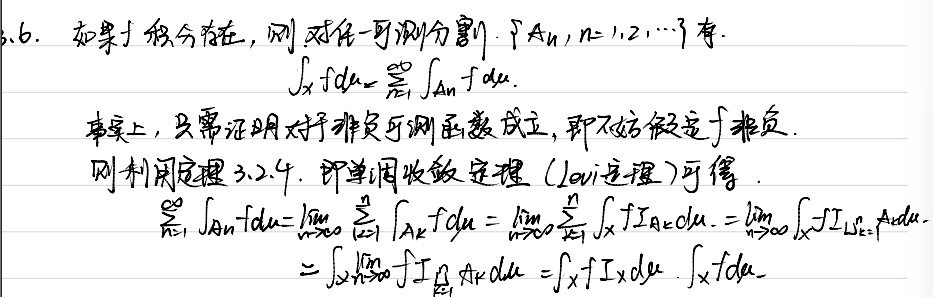 3.6. 如果f积分存在，则对任一可测分割.{An, n=1,2,…}有.
∫_X fdμ = Σ_{n=1}^∞ ∫_{An} fdμ.
事实上，只需证明对于非负可测函数成立，即不妨假定f非负.
则利用定理3.2.4. 即单调收敛定理（Levi定理）可得.
Σ_{n=1}^∞ ∫_{An} fdμ = lim_{n→∞} Σ_{k=1}^n ∫_{Ak} fdμ = lim_{n→∞} Σ_{k=1}^n ∫_X fI_{Ak} dμ. = lim_{n→∞} ∫_X fI_{∪_{k=1}^n Ak} dμ.
= ∫_X lim_{n→∞} fI_{∪_{k=1}^n Ak} dμ = ∫_X fI_X dμ. ∫_X fdμ